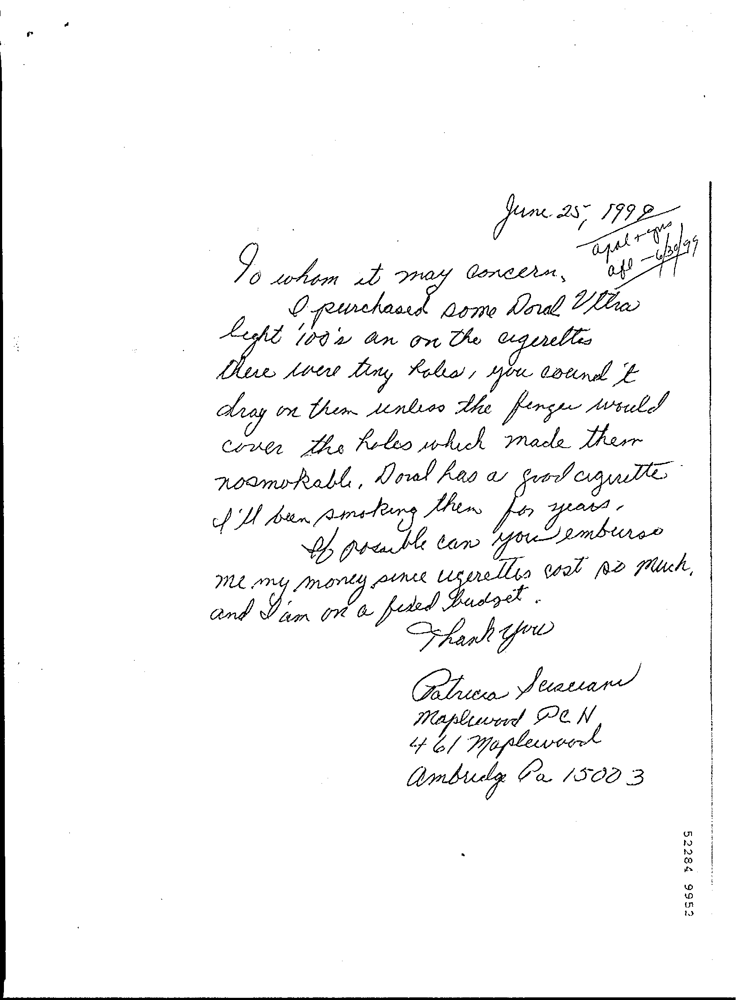 June 25, 1999
apol + cpns
afl - 6/30/99
To whom it may concern,
I purchased some Doral Ultra
light '100's an on the cigerettes
there were tiny holes, you cound't
drag on them unless the finger would
cover the holes which made them
nosmokable. Doral has a good cigerette
I'll been smoking them for years.
If possible can you emburse
me my money since cigerettes cost so much,
and I'am on a fixed budget.
Thank you
Patricia
Maplewood PCH
461 Maplewood
Ambridge Pa 15003
52284 9952